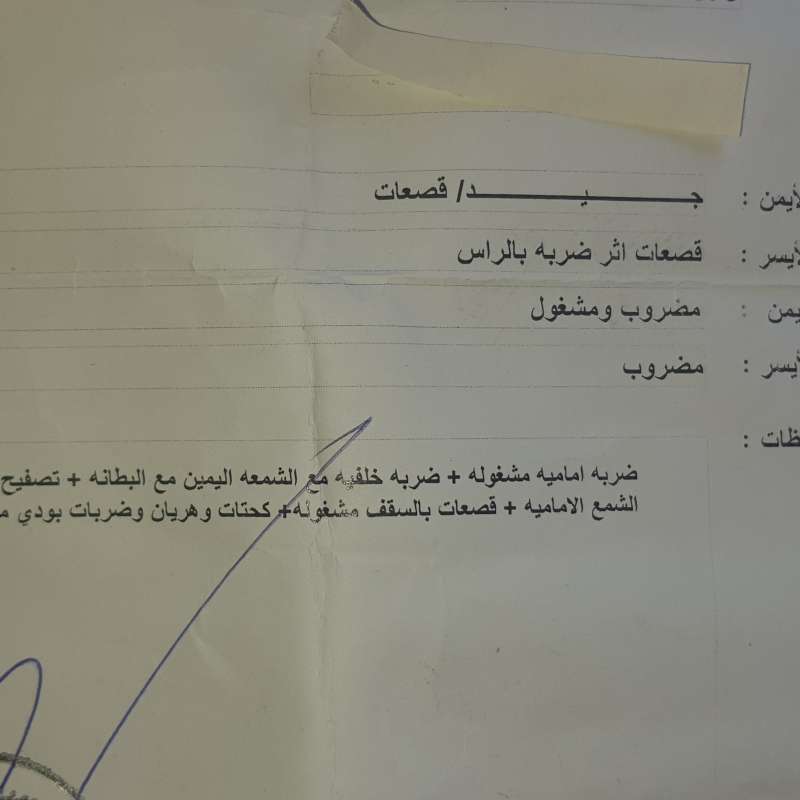 الأيمن : جيد/ قصعات
الأيسر : قصعات اثر ضربه بالراس
يمن : مضروب ومشغول
أيسر : مضروب
ظات :
ضربه اماميه مشغوله + ضربه خلفيه مع الشمعه اليمين مع البطانه + تصفيح
الشمع الاماميه + قصعات بالسقف مشغوله+ كحتات وهريان وضربات بودي